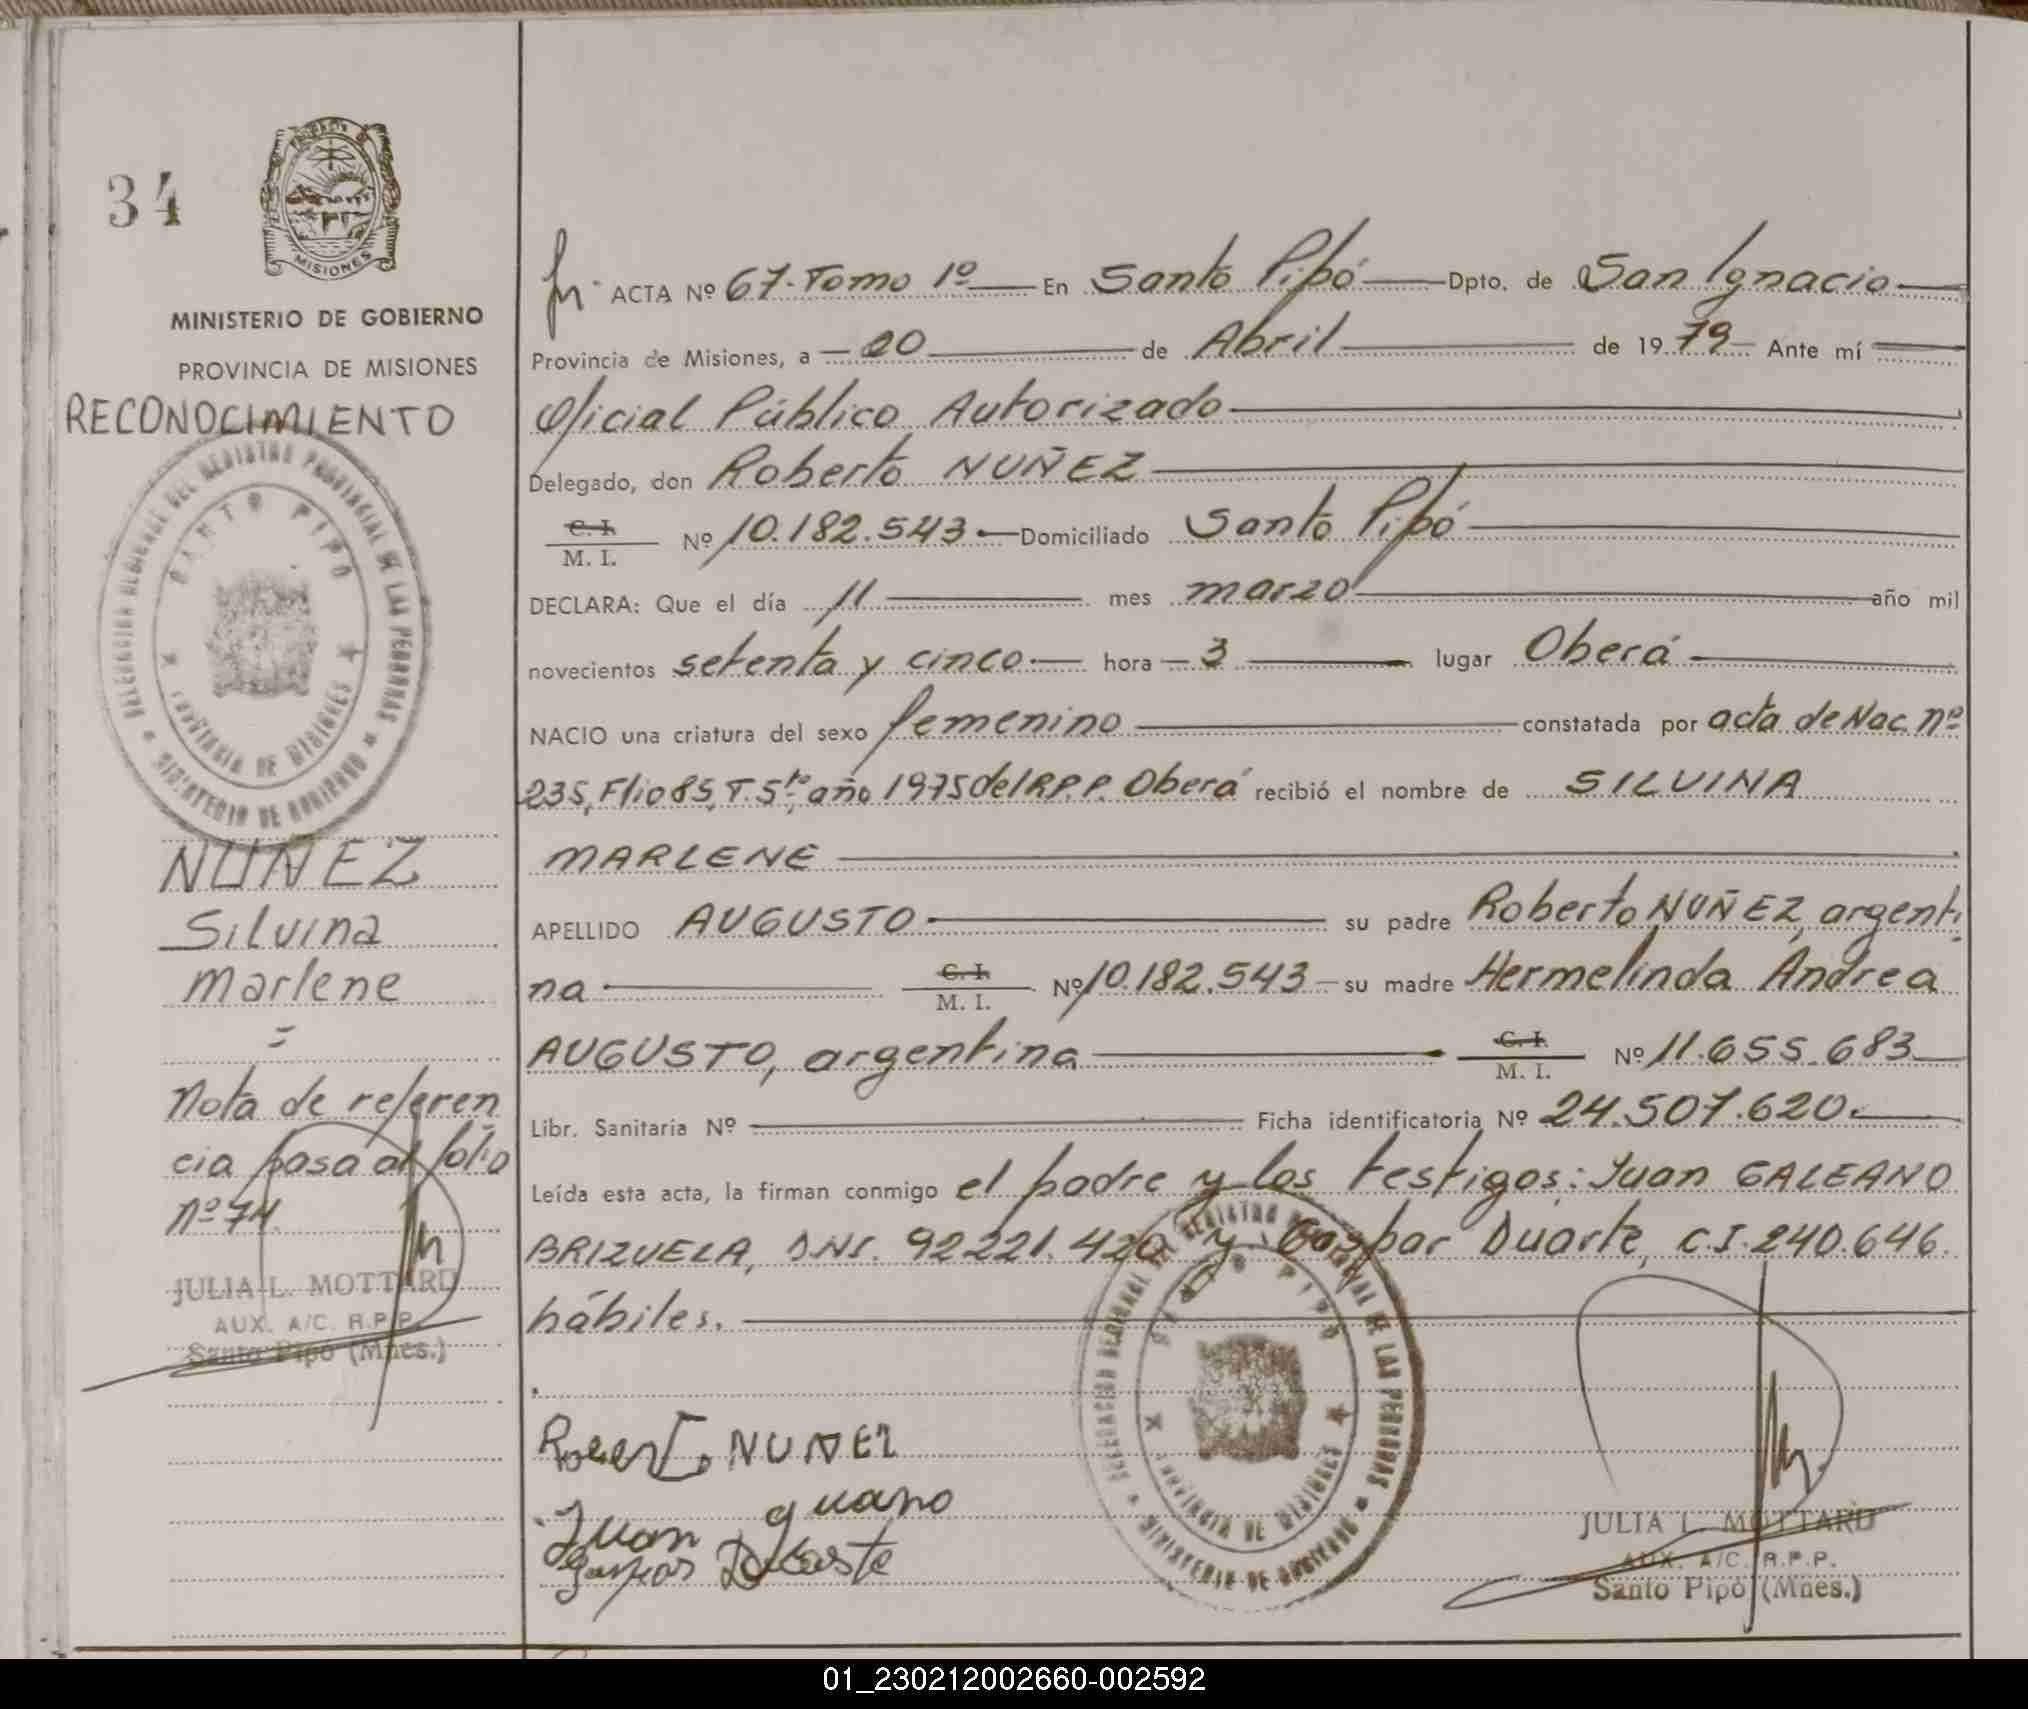 34
MISIONES
MINISTERIO DE GOBIERNO
PROVINCIA DE MISIONES
RECONOCIMIENTO
DELEGACION REGIONAL DEL REGISTRO PROVINCIAL DE LAS PERSONAS * MINISTERIO DE GOBIERNO *
SANTO PIPO
PROVINCIA DE MISIONES
NUÑEZ
Silvina
Marlene
=
Nota de referen
cia pasa al folio
Nº 74
JULIA L. MOTTARD
AUX. A/C. R.P.P.
Santo Pipó (Mnes.)
ACTA Nº 67. Tomo 1º En Santo Pipó Dpto. de San Ignacio
Provincia de Misiones, a 20 de Abril de 1979 Ante mí
Oficial Público Autorizado
Delegado, don Roberto NUÑEZ
C. I.
M. I. Nº 10.182.543 Domiciliado Santo Pipó
DECLARA: Que el día 11 mes marzo año mil
novecientos setenta y cinco hora 3 lugar Oberá
NACIO una criatura del sexo femenino constatada por acta de Nac. nº
235, Flio 85, T. 5to año 1975 del R.P.P. Oberá recibió el nombre de SILVINA
MARLENE
APELLIDO AUGUSTO su padre Roberto NUÑEZ, argenti
na C. I. M. I. Nº 10.182.543 su madre Hermelinda Andrea
AUGUSTO, argentina C. I. M. I. Nº 11.655.683
Libr. Sanitaria Nº Ficha identificatoria Nº 24.507.620.
Leída esta acta, la firman conmigo el padre y los testigos: Juan GALEANO
BRIZUELA, DNI. 92221.420 y Gaspar Duarte, C.I. 240.646.
hábiles.
NUÑEZ
Juan
DELEGACION REGIONAL DEL REGISTRO PROVINCIAL DE LAS PERSONAS * MINISTERIO DE GOBIERNO *
SANTO PIPO
PROVINCIA DE MISIONES
JULIA L. MOTTARD
AUX. A/C. R.P.P.
Santo Pipó (Mnes.)
01_230212002660-002592